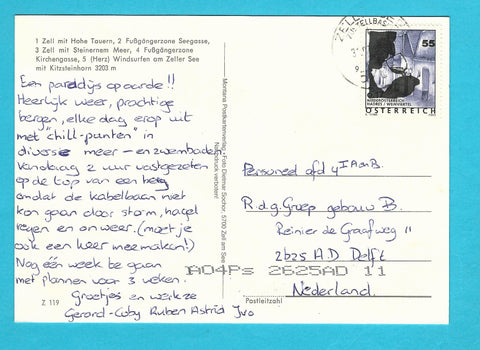 1 Zell mit Hohe Tauern, 2 Fußgängerzone Seegasse,
3 Zell mit Steinernem Meer, 4 Fußgängerzone
Kirchengasse, 5 (Herz) Windsurfen am Zeller See
mit Kitzsteinhorn 3203 m
Een paradijs op aarde!!
Heerlijk weer, prachtige
bergen, elke dag erop uit
met "chill-punten" in
diverse meer- en zwembaden.
Vandaag 2 uur vastgezeten
op de top van een berg
omdat de kabelbaan niet
kon gaan door storm, hagel
regen en onweer. (moet je
ook een keer meemaken!)
Nog één week te gaan
met plannen voor 3 weken.
Groetjes en werkze
Gerard-Coby Ruben Astrid Ivo
Z 119
Montana Postkartenverlag - Foto 5700 Zell am See
Nachdruck verboten!
55
NIEDERÖSTERREICH
ÖSTERREICH
Personeel afd
R.d.g. Groep gebouw B.
Reinier de Graafweg 11
2625 A.D Delft
A04Ps 2625AD 11
Nederland.
Postleitzahl